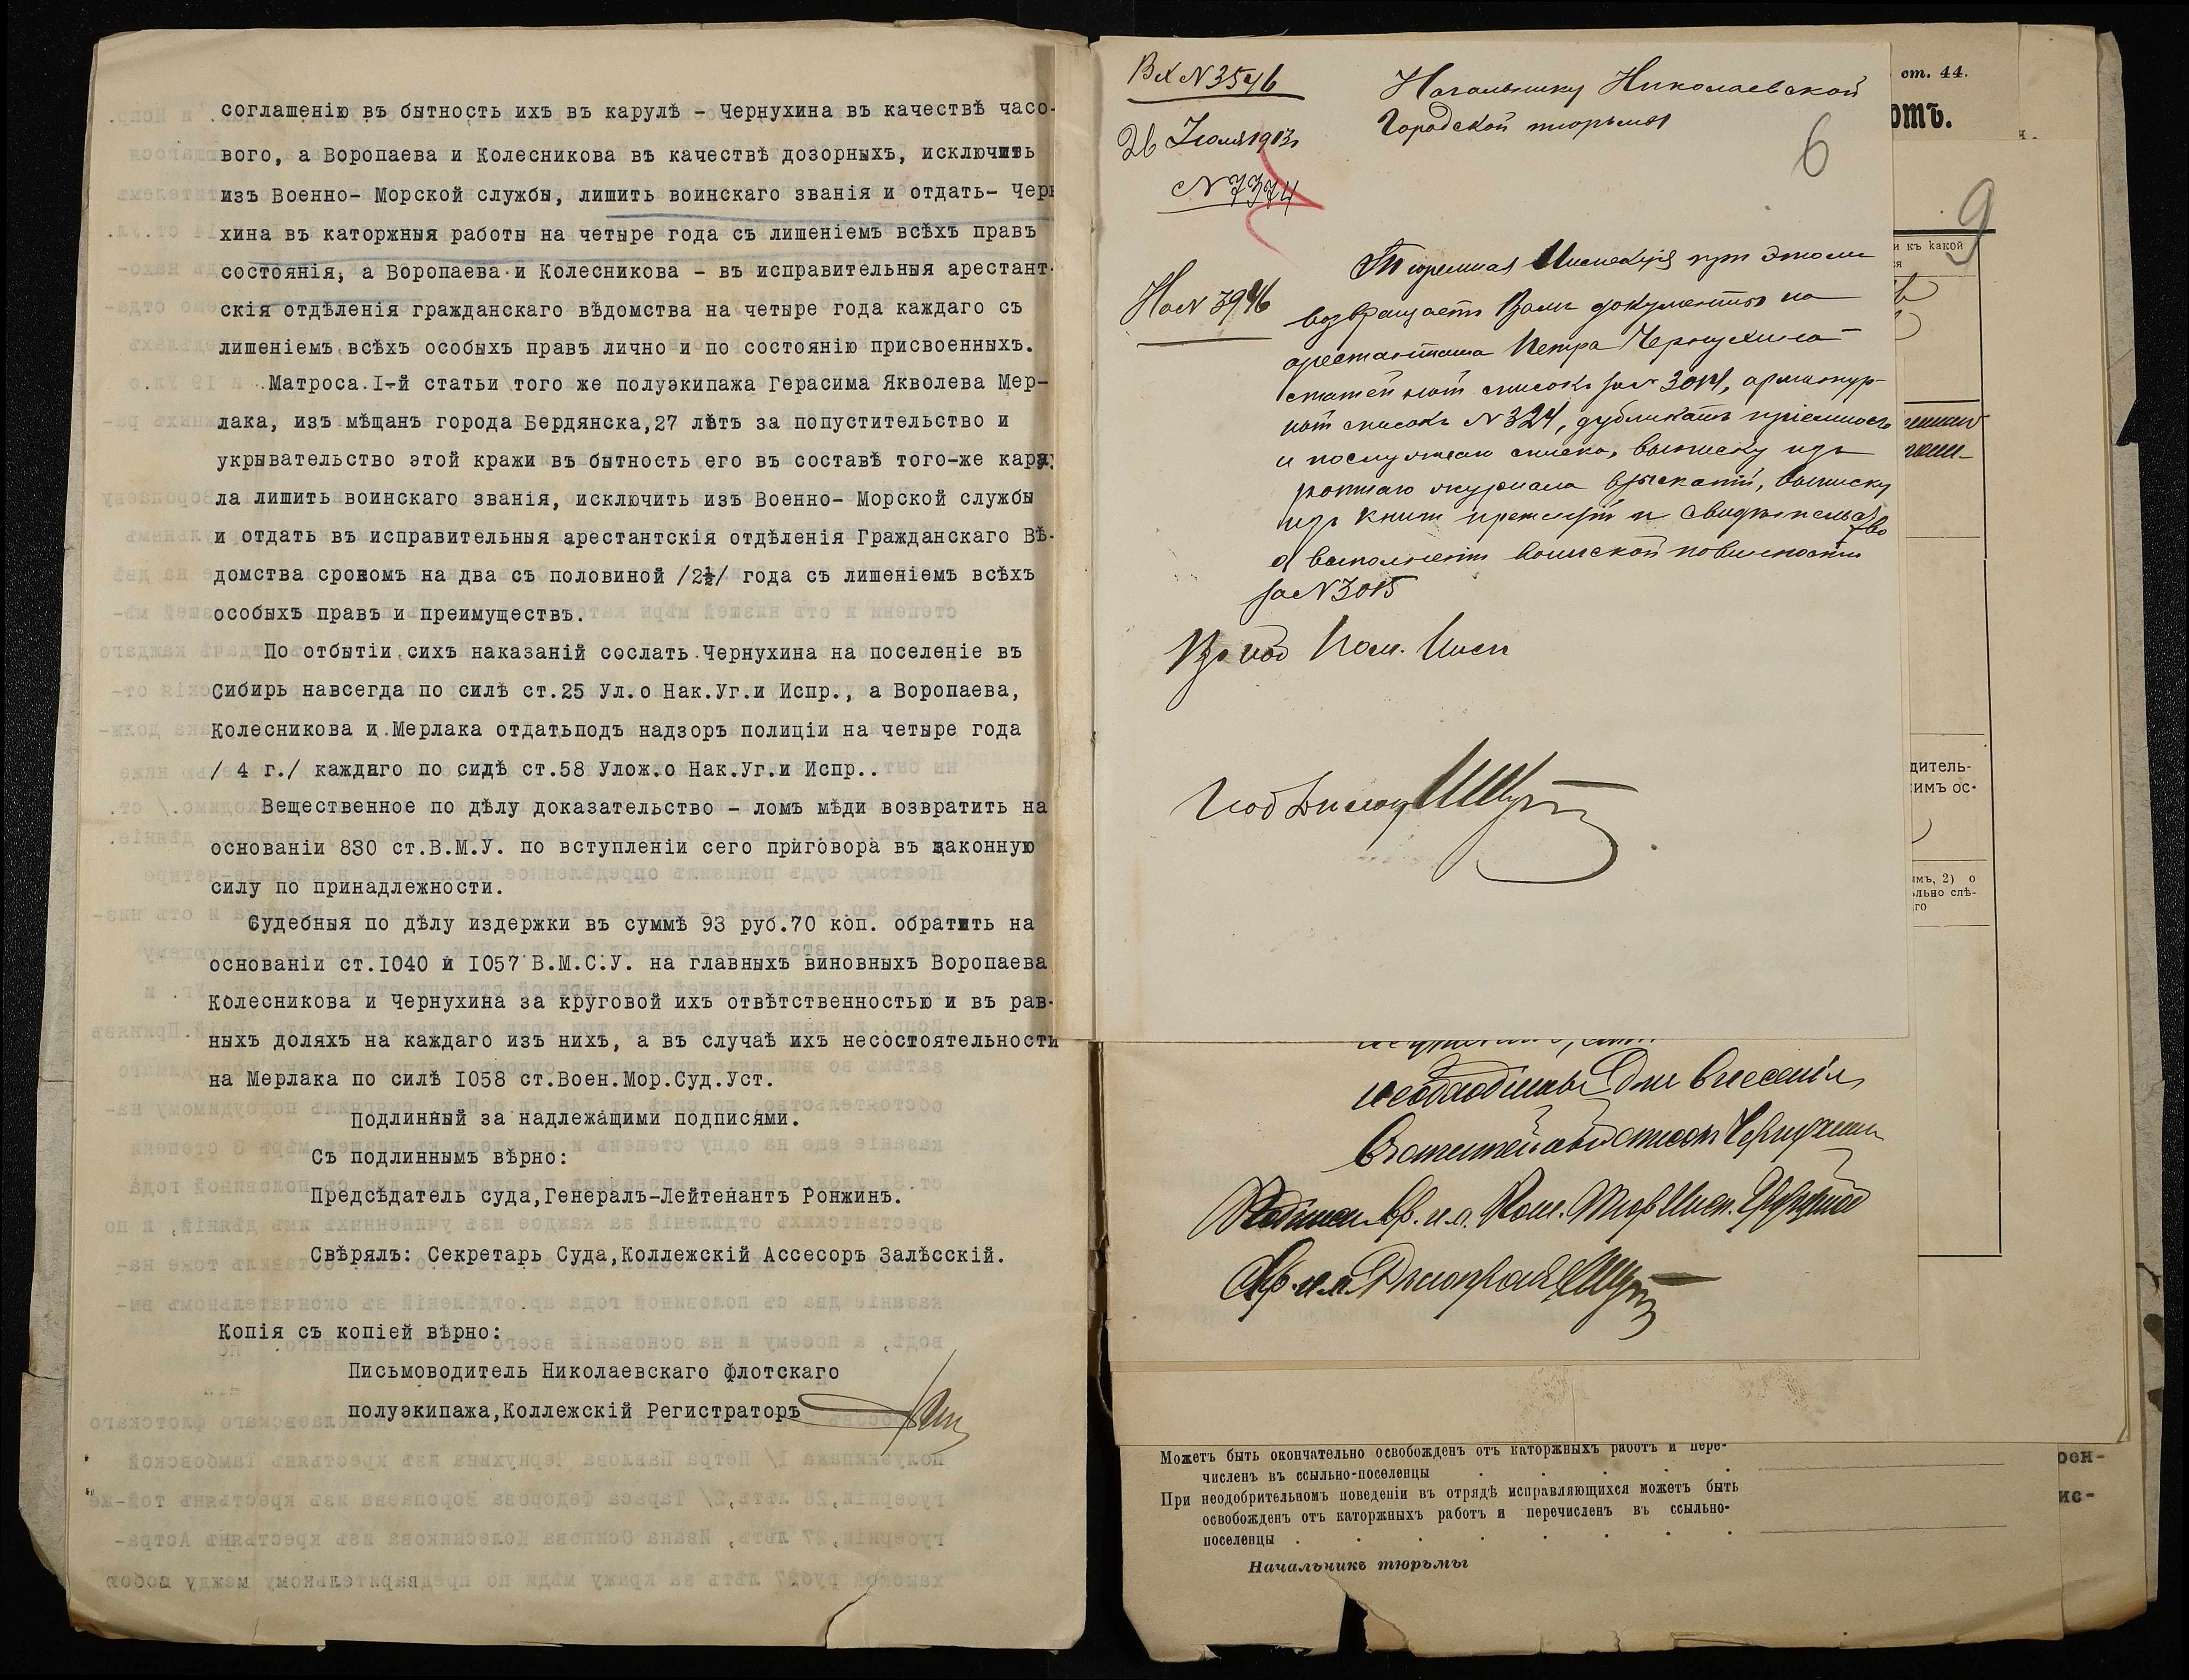 соглашенію въ бытность ихъ въ карулѣ – Чернухина въ качествѣ часо-
вого, а Воропаева и Колесникова въ качествѣ дозорныхъ, исключить
изъ Военно- Морской службы, лишить воинскаго званія и отдать- Черн
хина въ каторжныя работы на четыре года съ лишеніемъ всѣхъ правъ
состоянія, а Воропаева и Колесникова – въ исправительныя арестант-
скія отдѣленія гражданскаго вѣдомства на четыре года каждаго съ
лишеніемъ всѣхъ особыхъ правъ лично и по состоянію присвоенныхъ.
Матроса I-й статьи того же полуэкипажа Герасима Якволева Мер-
лака, изъ мѣщанъ города Бердянска,27 лѣтъ за попустительство и
укрывательство этой кражи въ бытность его въ составѣ того-же кару
ла лишить воинскаго званія, исключить изъ Военно- Морской службы
и отдать въ исправительныя арестантскія отдѣленія Гражданскаго Вѣ-
домства срокомъ на два съ половиной /2½/ года съ лишеніемъ всѣхъ
особыхъ правъ и преимуществъ.
По отбытіи сихъ наказаній сослать Чернухина на поселеніе въ
Сибирь навсегда по силѣ ст.25 Ул.о Нак.Уг.и Испр., а Воропаева,
Колесникова и Мерлака отдатьподъ надзоръ полиціи на четыре года
/ 4 г./ каждаго по сидѣ ст.58 Улож.о Нак.Уг.и Испр..
Вещественное по дѣлу доказательство – ломъ мѣди возвратить на
основаніи 830 ст.В.М.У. по вступленіи сего приговора въ законную
силу по принадлежности.
Судебныя по дѣлу издержки въ суммѣ 93 руб.70 коп. обратить на
основаніи ст.I040 и I057 В.М.С.У. на главныхъ виновныхъ Воропаева
Колесникова и Чернухина за круговой ихъ отвѣтственностью и въ рав-
ныхъ доляхъ на каждаго изъ нихъ, а въ случаѣ ихъ несостоятельности
на Мерлака по силѣ I058 ст.Воен.Мор.Суд.Уст.
Подлинный за надлежащими подписями.
Съ подлиннымъ вѣрно:
Предсѣдатель суда,Генералъ-Лейтенантъ Ронжинъ.
Свѣрялъ: Секретарь Суда,Коллежскій Ассесоръ Залѣсскій.
Копія съ копіей вѣрно:
Письмоводитель Николаевскаго флотскаго
полуэкипажа,Коллежскій Регистраторъ
Вх N 3546
26 Іюля 1913 г
N 7374
На N 3946
Начальнику Николаевской
Городской тюрьмы
6
Тюремная Инспекція при этомъ
возвращаетъ Вамъ документы на
арестанта Петра Чернухина
статейный списокъ за N 3014, арматур-
ный списокъ N 324, дубликатъ пріемнаго
и послужнаго списка, выписку изъ
ротнаго журнала взысканій, выписку
изъ книги претензій и свидѣтельство
о выполненіи воинской повинности
за N 3015
Пом. Инсп
необходимы для внесенія
въ статейный списокъ Чернухина
ст. 44.
отъ.
9
и къ какой
дитель-
имъ ос-
имъ, 2) о
льно слѣ-
го
Можетъ быть окончательно освобожденъ отъ каторжныхъ работъ и пере-
численъ въ ссыльно-поселенцы
При неодобрительномъ поведеніи въ отрядѣ исправляющихся можетъ быть
освобожденъ отъ каторжныхъ работъ и перечисленъ въ ссыльно-
поселенцы
Начальникъ тюрьмы